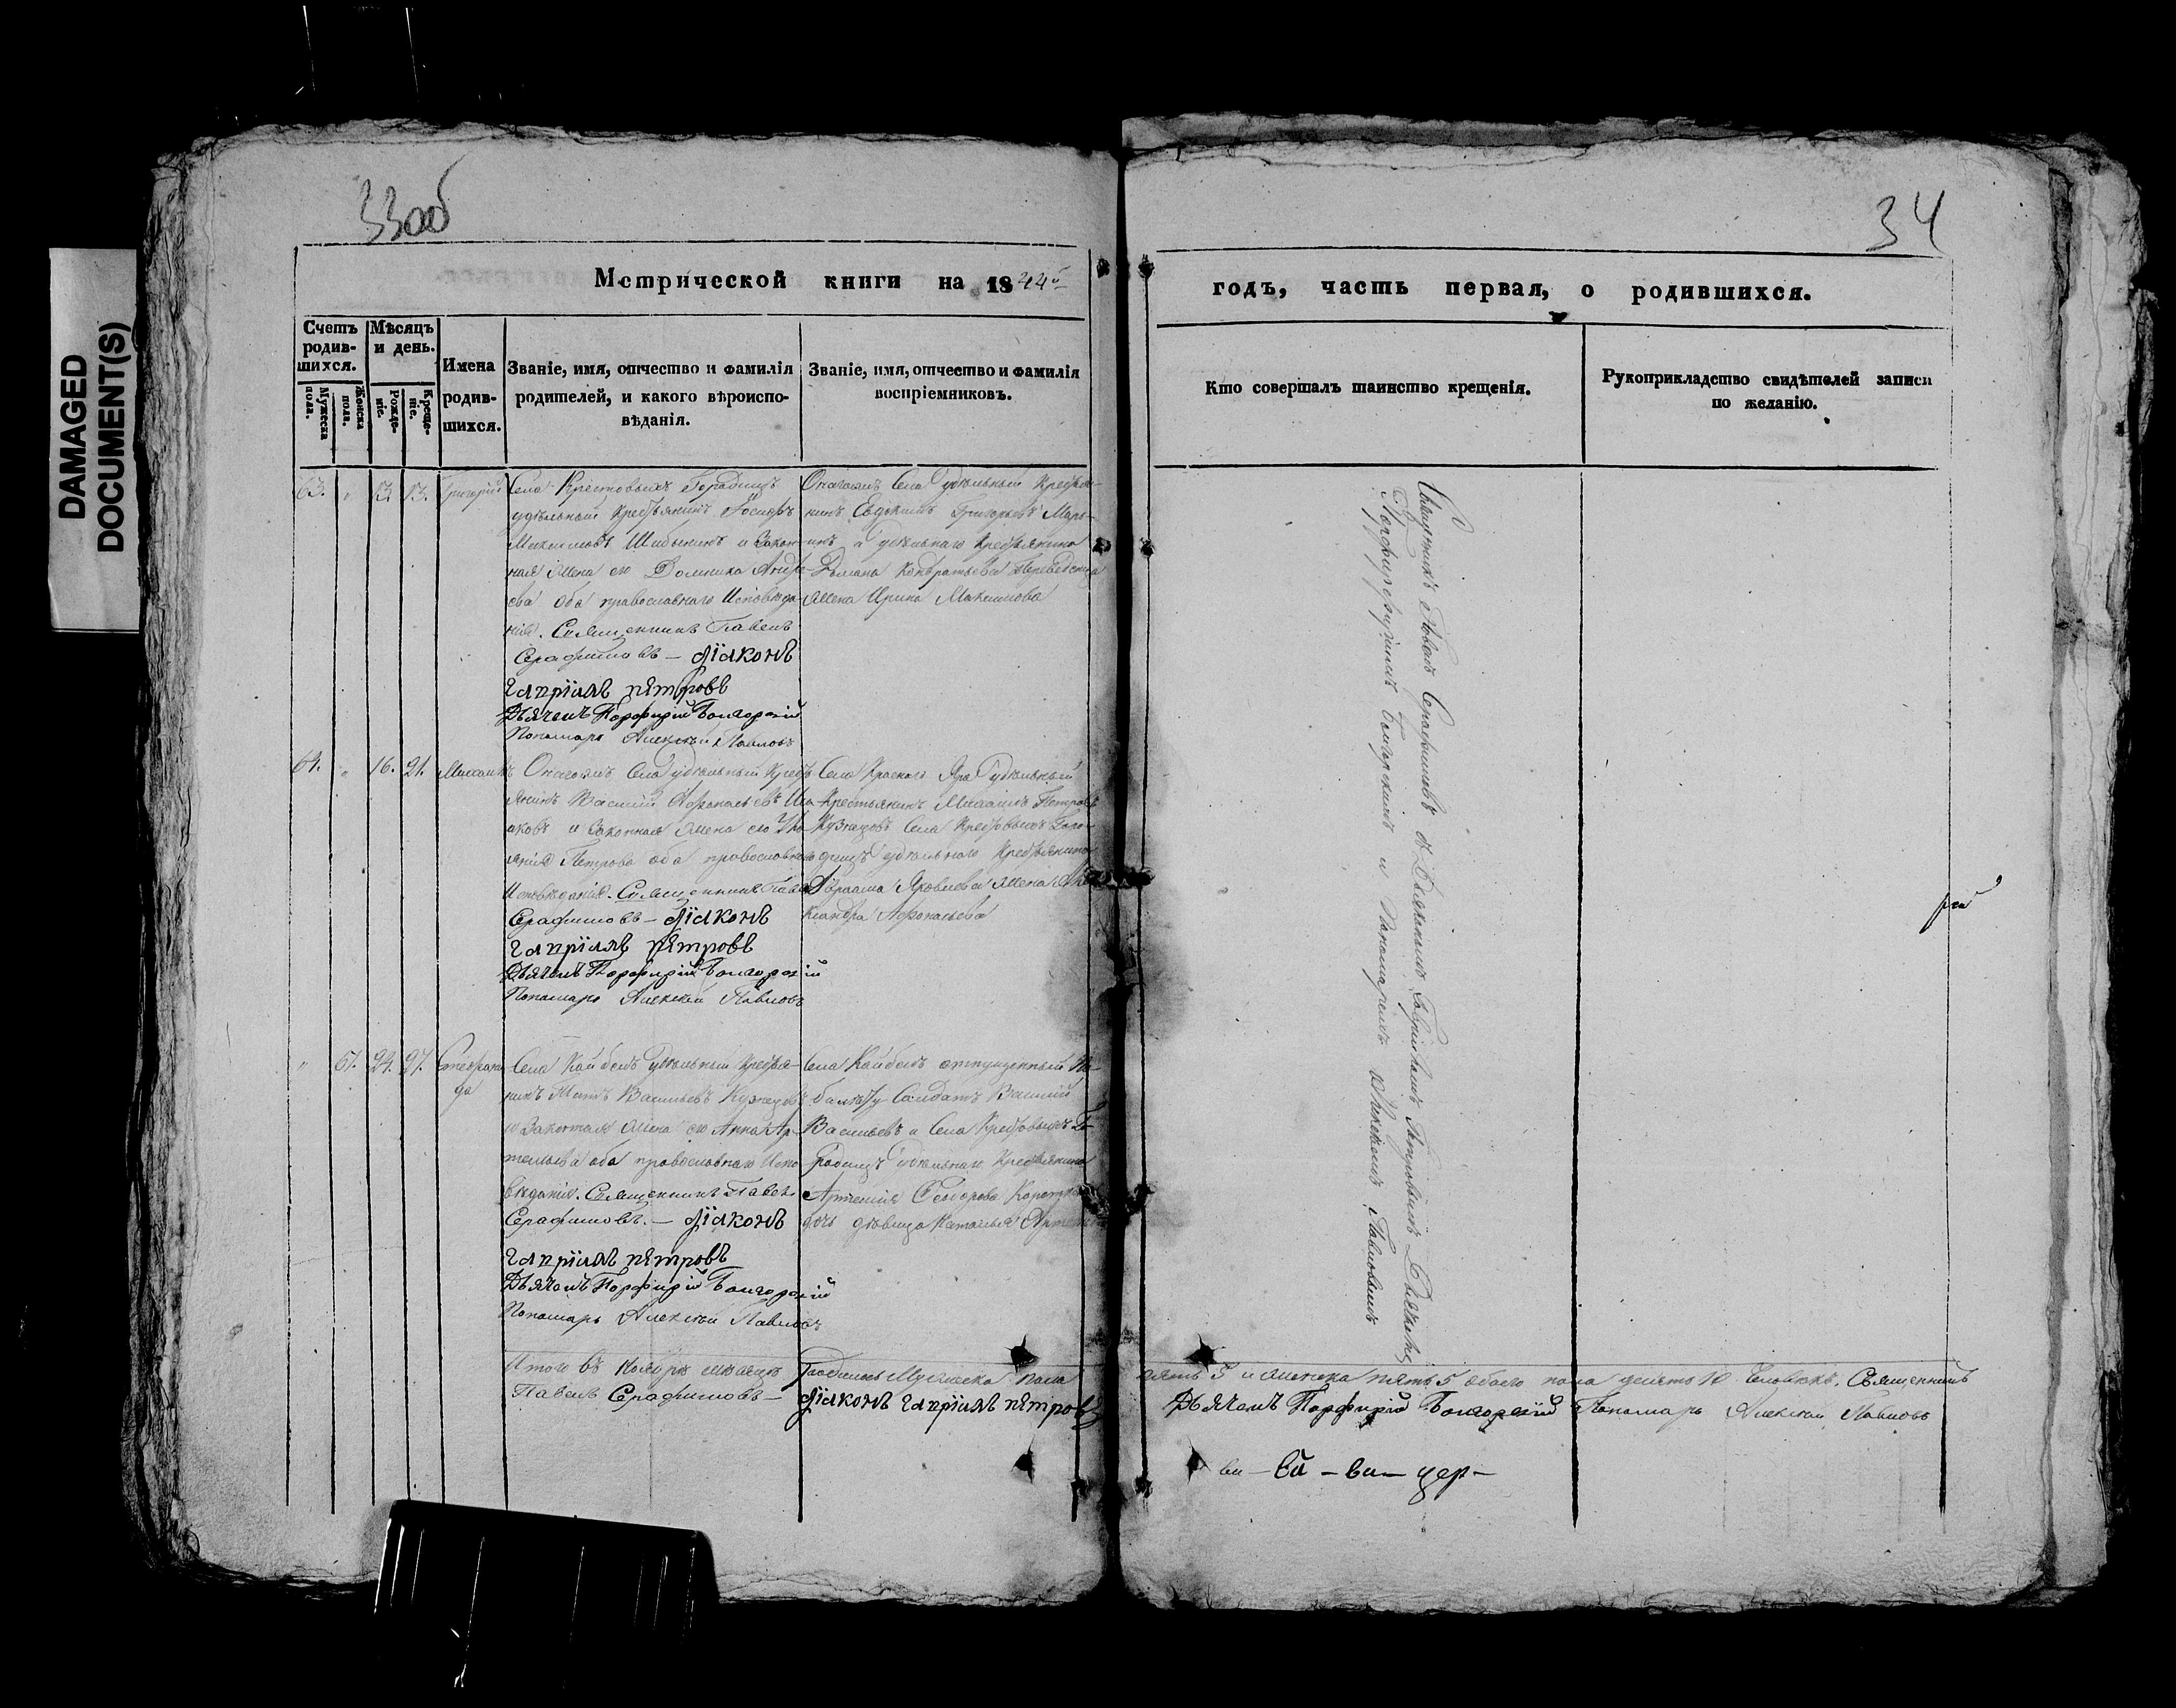 DAMAGED
DOCUMENT(S)
33 об
34
Метрической книги на 1844й
годъ, часть первая, о родившихся.
Счетъ
родив-
шихся.
Мужеска
пола.
Женска
пола.
Мѣсяцъ
и день.
Рожде-
нiе.
Креще-
нiе.
Имена
родив-
шихся.
Званіе, имя, отчество и фамилія
родителей, и какого вѣроиспо-
вѣданія.
Званіе, имя, отчество и фамилія
воспріемниковъ.
Кто совершалъ таинство крещенія.
Рукоприкладство свидѣтелей записи
по желанію.
63. " 13. 13. Григорій
Села Крестовыхъ Городищъ
удѣльный Крестьянинъ Іосифъ
Максимовъ и Закон-
ная Жена его Домника Андре-
ева оба православнаго Исповѣда-
нія. Священникъ Павелъ
Серафимовъ – Діаконъ
Гавріилъ Петровъ
Дьячекъ Порфирій Болгорскій
Пономарь Алексѣй Павловъ
Онагожъ Села удѣльный Крестья-
нинъ Евдокимъ Григорьевъ
и удѣльнаго Крестьянина
Кондратьева
Жена Ирина Максимова
64. " 16. 21. Михаилъ
Онагожъ Села удѣльный Кресть-
янинъ Василій Афонасьевъ
и Законная Жена его
Петрова оба православнаго
Исповѣданія. Священникъ Павелъ
Серафимовъ – Діаконъ
Гавріилъ Петровъ
Дьячекъ Порфирій Болгорскій
Пономарь Алексѣй Павловъ
Села Краснаго Яра удѣльный
Крестьянинъ Михаилъ Петровъ
Кузнецовъ Села Крестовыхъ Горо-
дищъ удѣльнаго Крестьянина
Авраама Яковлева Жена Але-
ксандра Афонасьева
" 61. 24. 27. Стефани-
да
Села Кайбелъ Удѣльный Крестья-
нинъ Васильевъ Кузнецовъ
и Законная Жена его Анна Ар-
темьева оба православнаго Испо-
вѣданія. Священникъ Павелъ
Серафимовъ. – Діаконъ
Гавріилъ Петровъ
Дьячекъ Порфирій Болгорскій
Пономарь Алексѣй Павловъ
Села Кайбелъ отпущенный
Солдатъ Василій
Васильевъ и Села Крестовыхъ Го-
родищъ удѣльнаго Крестьянина
Артемія Феодорова
дочь дѣвица Наталья
Священникъ Павелъ Серафимовъ съ Діакономъ Гавріиломъ Петровымъ Дьячкомъ
Порфиріемъ Болгорскимъ и Пономаремъ Алексѣемъ Павловымъ
Итого въ Ноябрѣ мѣсяцѣ Родилось Мужеска пола пять 5 и женска пять 5 обоего пола десять 10 Человѣкъ. Священникъ
Павелъ Серафимовъ – Діаконъ Гавріилъ Петровъ Дьячекъ Порфирій Болгорскій Пономарь Алексѣй Павловъ
цер –